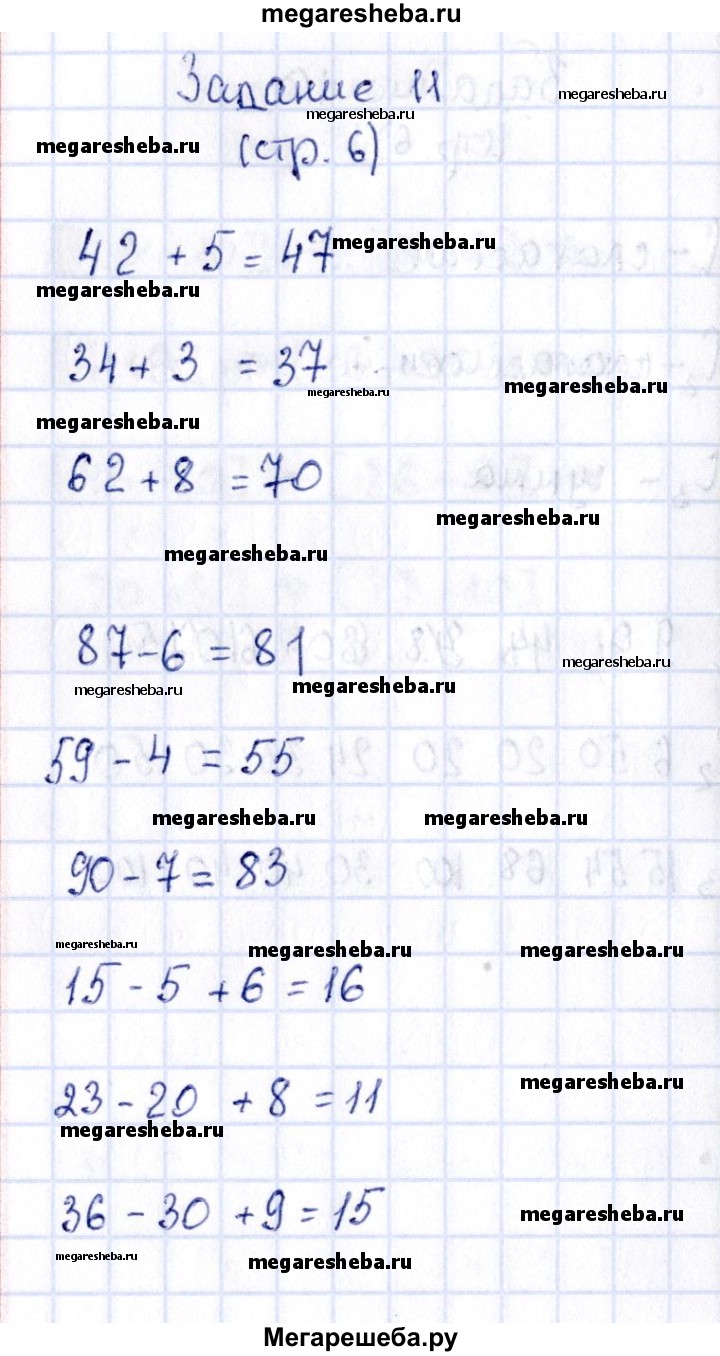 megaresheba.ru
Задание 11
megaresheba.ru
megaresheba.ru
megaresheba.ru
(стр. 6)
42 + 5 = 47
megaresheba.ru
megaresheba.ru
34 + 3 = 37
megaresheba.ru
megaresheba.ru
megaresheba.ru
62 + 8 = 70
megaresheba.ru
megaresheba.ru
87 - 6 = 81
megaresheba.ru
megaresheba.ru
megaresheba.ru
59 - 4 = 55
megaresheba.ru
megaresheba.ru
90 - 7 = 83
megaresheba.ru
megaresheba.ru
megaresheba.ru
15 - 5 + 6 = 16
megaresheba.ru
23 - 20 + 8 = 11
megaresheba.ru
36 - 30 + 9 = 15
megaresheba.ru
megaresheba.ru
megaresheba.ru
Мегарешеба.ру